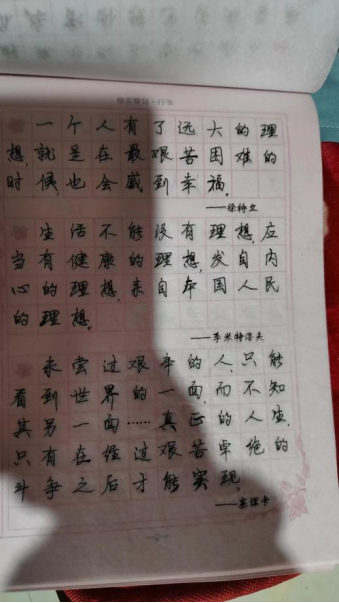 格言警句·行书
一个人有了远大的理
想,就是在最艰苦困难的
时候,也会感到幸福。
——徐特立
生活不能没有理想,应
当有健康的理想,发自内
心的理想,来自本国人民
的理想。
——季米特洛夫
未尝过艰辛的人,只能
看到世界的一面,而不知
其另一面……真正的人生,
只有在经过艰苦卓绝的
斗争之后才能实现。
——塞涅卡